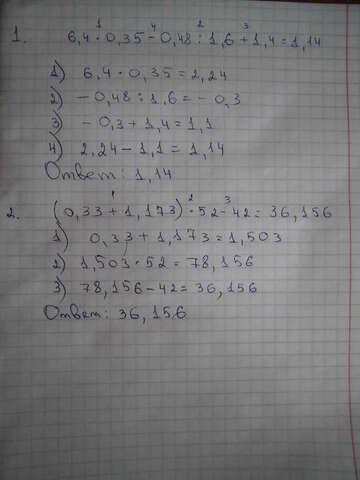 1. 6,4 · 0,35 - 0,48 : 1,6 + 1,4 = 1,14
1 4 2 3
1) 6,4 · 0,35 = 2,24
2) - 0,48 : 1,6 = - 0,3
3) - 0,3 + 1,4 = 1,1
4) 2,24 - 1,1 = 1,14
Ответ: 1,14
2. (0,33 + 1,173) · 52 - 42 = 36,156
1 2 3
1) 0,33 + 1,173 = 1,503
2) 1,503 · 52 = 78,156
3) 78,156 - 42 = 36,156
Ответ: 36,156